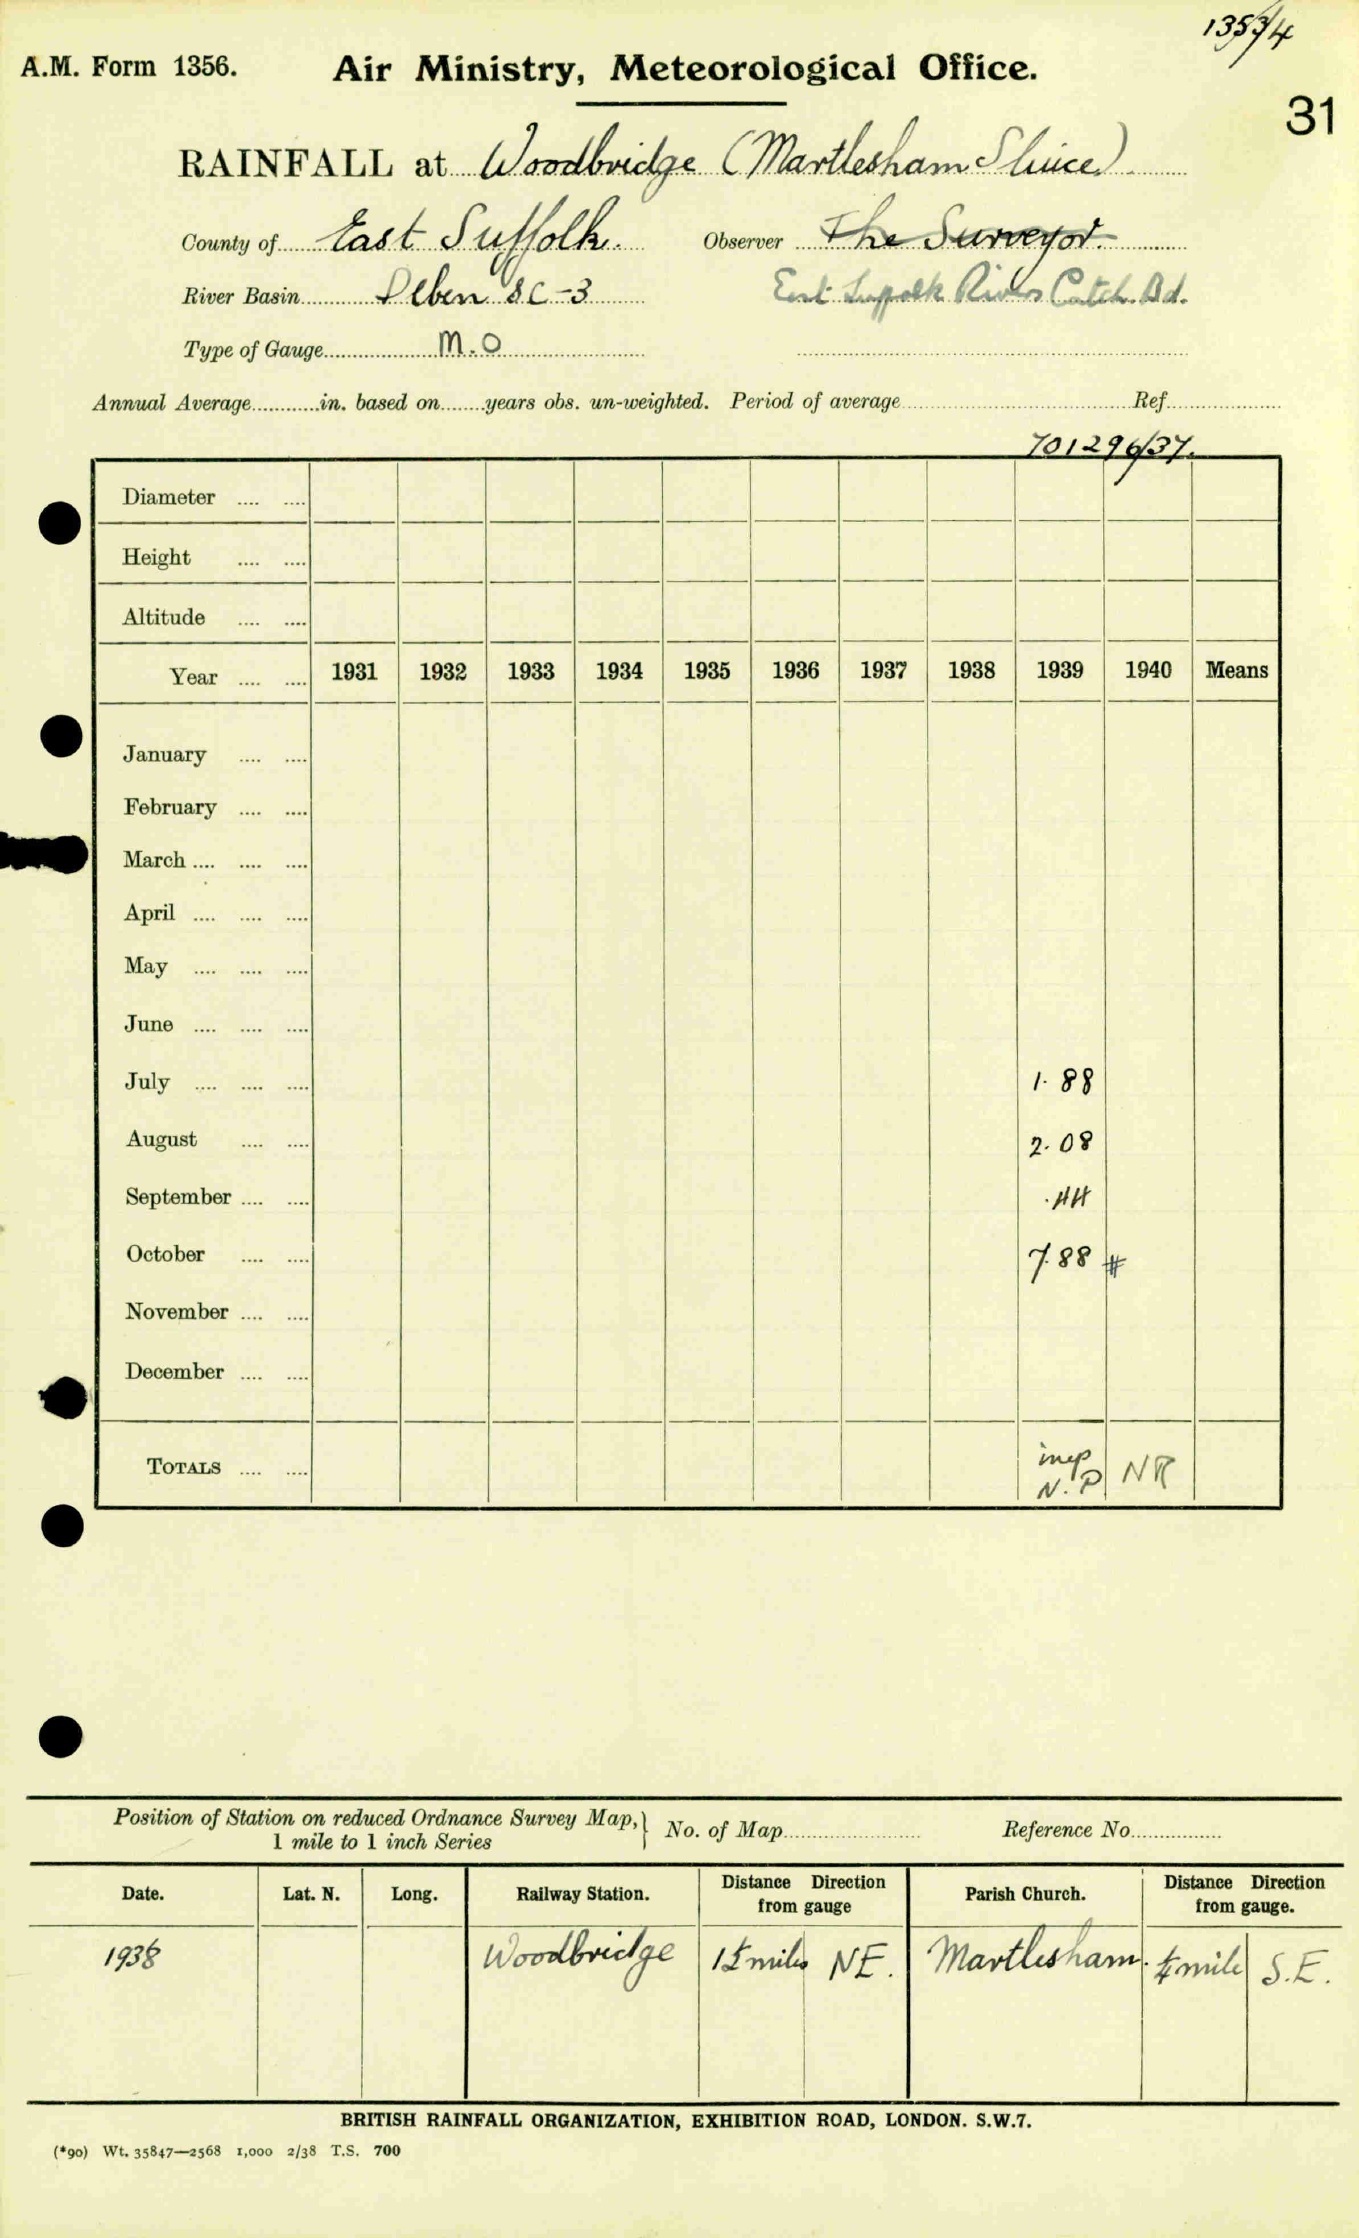 1353/4
A.M. Form 1356. Air Ministry, Meteorological Office.
31
RAINFALL at Woodbridge (Martlesham Sluice)
County of East Suffolk. Observer The Surveyor.
River Basin Deben 8C-3 East Suffolk Rivers Catch. Bd.
Type of Gauge M.O
Annual Average in. based on years obs. un-weighted. Period of average Ref.
701296/37.
Diameter
Height
Altitude
Year 1931 1932 1933 1934 1935 1936 1937 1938 1939 1940 Means
January
February
March
April
May
June
July 1.88
August 2.08
September .44
October 7.88 #
November
December
TOTALS incp N.P NR
Position of Station on reduced Ordnance Survey Map,} No. of Map Reference No.
1 mile to 1 inch Series
Date. Lat. N. Long. Railway Station. Distance Direction from gauge Parish Church. Distance Direction from gauge.
1938 Woodbridge miles NE. Martlesham. ¼ mile S.E.
BRITISH RAINFALL ORGANIZATION, EXHIBITION ROAD, LONDON. S.W.7.
(*90) Wt. 35847—2568 1,000 2/38 T.S. 700